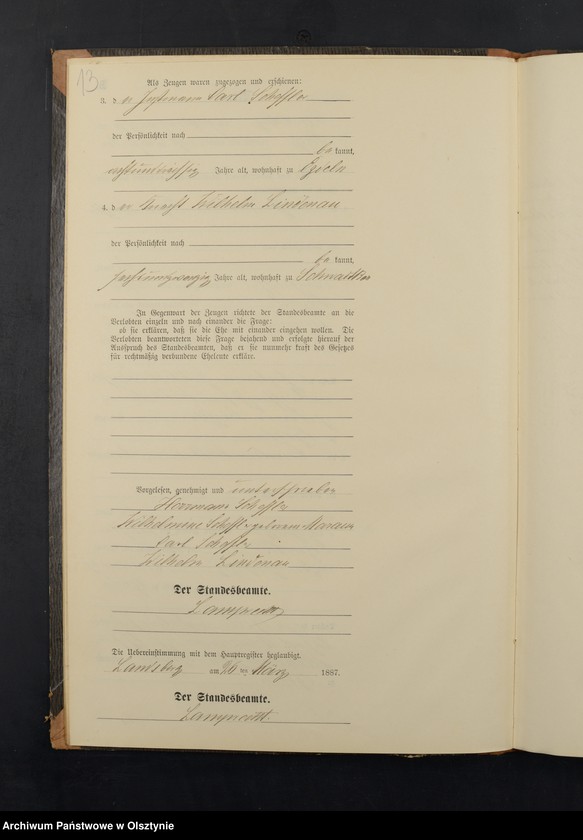 13
Als Zeugen waren zugezogen und erschienen:
3. der Carl Scheffler
der Persönlichkeit nach
bekannt,
Jahre alt, wohnhaft zu
4. der Knecht Wilhelm Lindenau
der Persönlichkeit nach
bekannt,
Jahre alt, wohnhaft zu
In Gegenwart der Zeugen richtete der Standesbeamte an die
Verlobten einzeln und nach einander die Frage:
ob sie erklären, daß sie die Ehe mit einander eingehen wollen. Die
Verlobten beantworteten diese Frage bejahend und erfolgte hierauf der
Ausspruch des Standesbeamten, daß er sie nunmehr kraft des Gesetzes
für rechtmäßig verbundene Eheleute erkläre.
Vorgelesen, genehmigt und unterschrieben
Herrmann Scheffler
Wilhelmine Scheffler geborene
Carl Scheffler
Wilhelm Lindenau
Der Standesbeamte.
Lamprecht
Die Uebereinstimmung mit dem Hauptregister beglaubigt.
Landsberg am 26 ten März 1887.
Der Standesbeamte.
Lamprecht
Archiwum Państwowe w Olsztynie